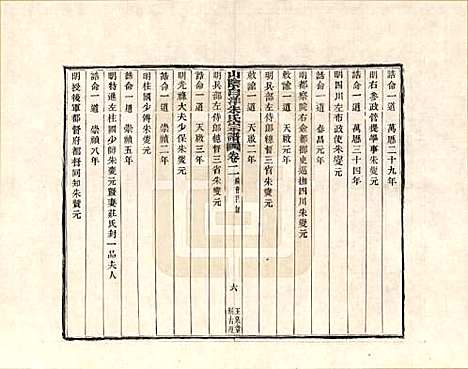 誥命一道 萬曆二十九年
明右參政督提學事朱燮元
誥命一道 萬曆三十四年
明四川左布政使朱燮元
誥命一道 泰昌元年
明都察院右僉都御史巡撫四川朱燮元
敕諭一道 天啟元年
明兵部左侍郎總督三省朱燮元
敕諭一道 天啟二年
山陰白洋朱氏宗譜 卷二
六
玉泉堂
明兵部左侍郎總督三省朱燮元
誥命一道 天啟三年
明光祿大夫少保朱燮元
誥命一道 崇禎二年
明柱國少傅朱燮元
誥命一道 崇禎五年
明特進左柱國少師朱燮元暨妻莊氏封一品夫人
誥命一道 崇禎八年
明授後軍都督府都督同知朱燮元